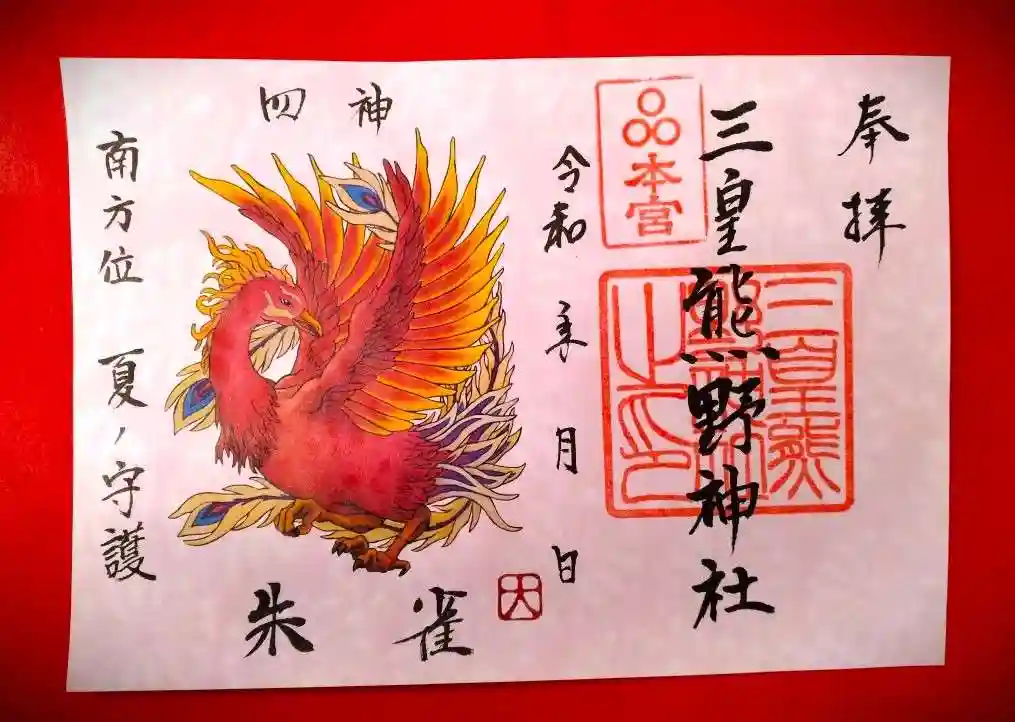 奉拝
三皇熊野神社
本宮
三皇熊
之印
令和 年 月 日
四神
朱雀
南方位 夏ノ守護